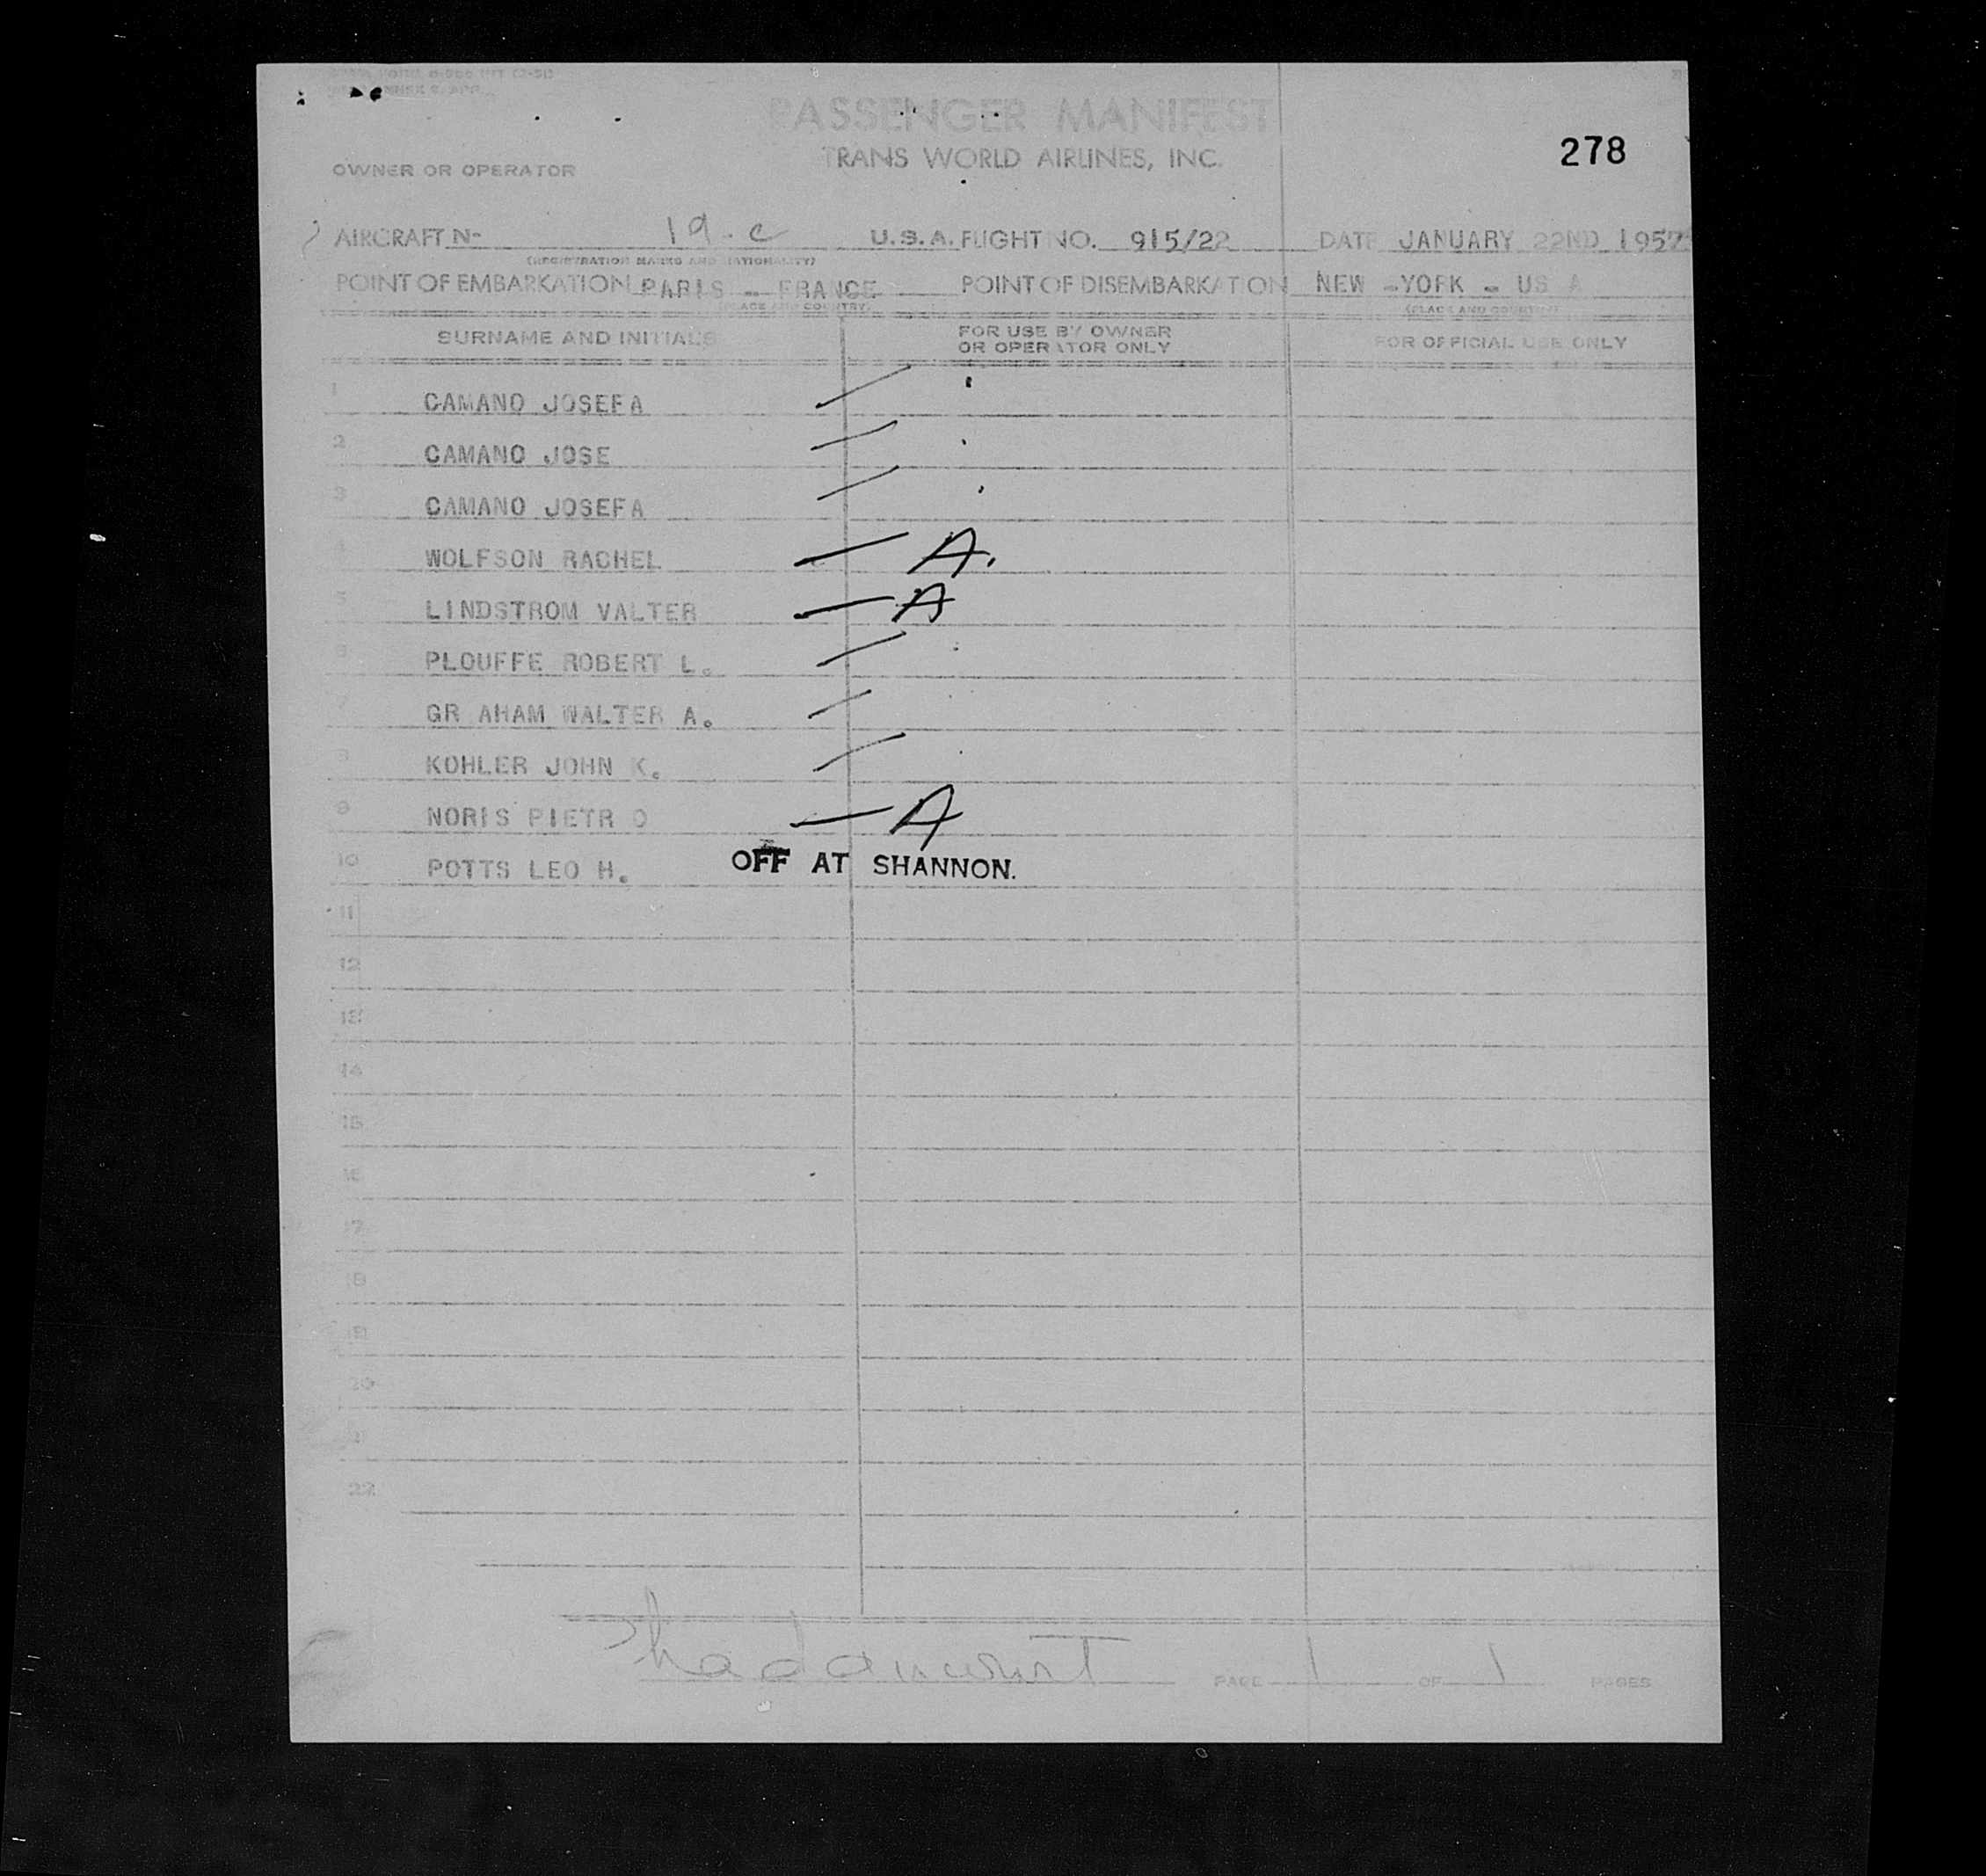 PASSENGER MANIFEST
278
TRANS WORLD AIRLINES, INC.
OWNER OR OPERATOR
AIRCRAFT N- 19-C U.S.A. FLIGHT NO. 915/22 DATE JANUARY 22ND 1957
(REGISTRATION MARKS AND NATIONALITY)
POINT OF EMBARKATION PARIS - FRANCE POINT OF DISEMBARKATION NEW -YORK - US A
(PLACE AND COUNTRY) (PLACE AND COUNTRY)
SURNAME AND INITIALS FOR USE BY OWNER OR OPERATOR ONLY FOR OFFICIAL USE ONLY
1 CAMANO JOSEFA
2 CAMANO JOSE
3 CAMANO JOSEFA
4 WOLFSON RACHEL A.
5 LINDSTROM VALTER A
6 PLOUFFE ROBERT L.
7 GR AHAM WALTER A.
8 KOHLER JOHN K.
9 NORIS PIETR O A
10 POTTS LEO H. OFF AT SHANNON.
11
12
13
14
15
16
17
18
19
20
21
22
PAGE 1 OF 1 PAGES